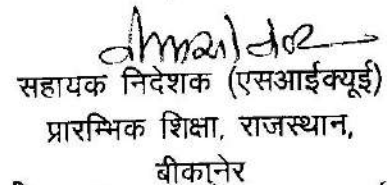 सहायक निदेशक (एसआईक्यूई)
प्रारम्भिक शिक्षा, राजस्थान,
बीकानेर